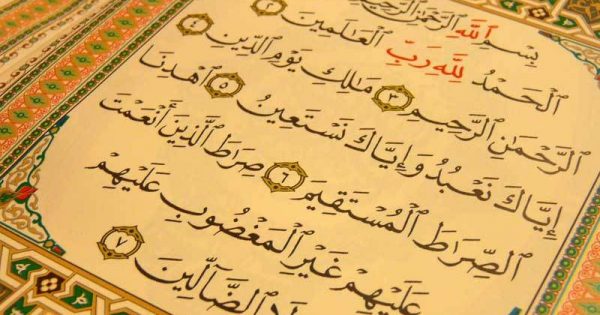 بِسْمِ ٱللَّهِ ٱلرَّحْمَٰنِ ٱلرَّحِيمِ
ٱلْحَمْدُ لِلَّهِ رَبِّ ٱلْعَٰلَمِينَ ٢
ٱلرَّحْمَٰنِ ٱلرَّحِيمِ ٣ مَٰلِكِ يَوْمِ ٱلدِّينِ ٤
إِيَّاكَ نَعْبُدُ وَإِيَّاكَ نَسْتَعِينُ ٥ ٱهْدِنَا
ٱلصِّرَٰطَ ٱلْمُسْتَقِيمَ ٦ صِرَٰطَ ٱلَّذِينَ أَنْعَمْتَ
عَلَيْهِمْ غَيْرِ ٱلْمَغْضُوبِ عَلَيْهِمْ
لَا ٱلضَّآلِّينَ ٧